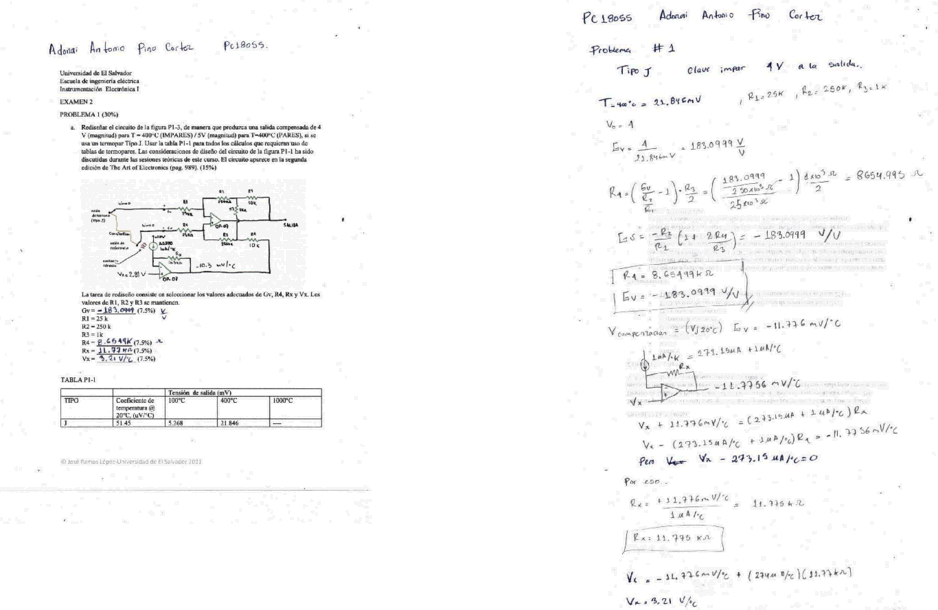 Adonai Antonio Pino Cortez PC18055.
Universidad de El Salvador
Escuela de ingeniería eléctrica
Instrumentación Electrónica I
EXAMEN 2
PROBLEMA 1 (30%)
a. Rediseñar el circuito de la figura P1-3, de manera que produzca una salida compensada de 4
V (magnitud) para T = 400°C (IMPARES) / 5V (magnitud) para T=400°C (PARES), si se
usa un termopar Tipo J. Usar la tabla P1-1 para todos los cálculos que requieran uso de
tablas de termopares. Las consideraciones de diseño del circuito de la figura P1-1 ha sido
discutidas durante las sesiones teóricas de este curso. El circuito aparece en la segunda
edición de The Art of Electronics (pag. 989). (15%)
R1
R4
OP-07
SALIDA
Constantan
-10.3 mV/°C
Vx=2.81 V
OP-07
La tarea de rediseño consiste en seleccionar los valores adecuados de Gv, R4, Rx y Vx. Los
valores de R1, R2 y R3 se mantienen.
Gv = -183.0999 (7.5%) V/V
R1 = 25 k
R2 = 250 k
R3 = 1k
R4 = 8.6549K (7.5%) Ω
Rx = 11.77 KΩ (7.5%)
Vx = 3.21 V/°C (7.5%)
TABLA P1-1
Tensión de salida (mV)
TIPO Coeficiente de temperatura @ 20°C, (uV/°C) 100°C 400°C 1000°C
J 51.45 5.268 21.846 ----
© José Ramos López-Universidad de El Salvador 2022
PC18055 Adonai Antonio Pino Cortez
Problema #1
Tipo J Clave impar 4V a la salida.
T=400°C = 21.846mV , R1=25K , R2=250K, R3=1K
Vo = 4
Gv = 4 / 21.846mV = 183.0999 V/V
R4 = (Gv / (R2/R1) - 1) · R3/2 = (183.0999 / (250x10³Ω / 25x10³Ω) - 1) 1x10³Ω / 2 = 8654.995 Ω
Gv = -R2/R1 (1 + 2R4/R3) = -183.0999 V/V
R4 = 8.65499 KΩ
Gv = -183.0999 V/V
Vcompensacion = (Vj20°C) Gv = -11.776 mV/°C
1uA/°K = 273.15uA + 1uA/°C
Rx
-11.7756 mV/°C
Vx
Vx + 11.776mV/°C = (273.15uA + 1uA/°C) Rx
Vx - (273.15uA/°C + 1uA/°C) Rx = -11.7756 mV/°C
Pero Vx - 273.15 uA/°C=0
Por eso..
Rx = +11.776mV/°C / 1uA/°C = 11.775 KΩ
Rx = 11.775 KΩ
Vx = -11.776mV/°C + (274u A/°C)(11.77KΩ)
Vx = 3.21 V/°C